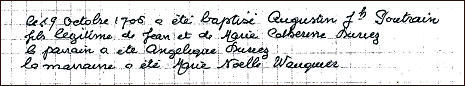 le 19 Octobre 1706 a été baptisé Augustin Jh Doutrain
fils légitime de Jean et de Marie Catherine Duriez
le parain a été Angelique Duriez
la marraine a été Marie Noëlle Wauquier